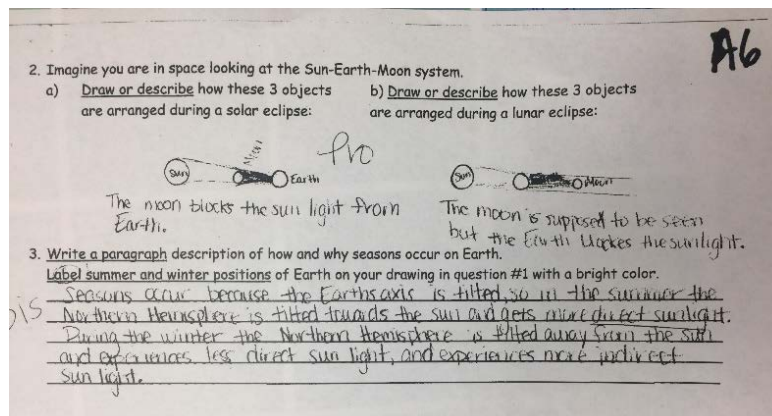 A6
2. Imagine you are in space looking at the Sun-Earth-Moon system.
a) Draw or describe how these 3 objects
are arranged during a solar eclipse:
b) Draw or describe how these 3 objects
are arranged during a lunar eclipse:
Pro
Moon
Sun
Earth
The moon blocks the sun light from
Earth.
Sun
Moon
The moon is supposed to be seen
but the Earth blockes the sunlight.
3. Write a paragraph description of how and why seasons occur on Earth.
Label summer and winter positions of Earth on your drawing in question #1 with a bright color.
Seasons occur because the Earths axis is tilted, so in the summer the
Dis
Northern Hemisphere is tilted towards the sun and gets more direct sunlight.
During the winter the Northern Hemisphere is tilted away from the sun
and experiences less direct sun light, and experiences more indirect
sun light.